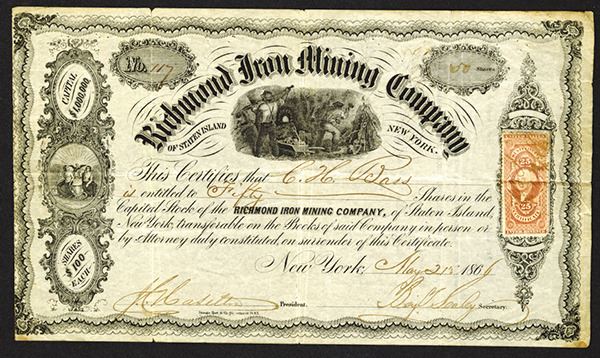 No. 117
50 Shares
Richmond Iron Mining Company
OF STATEN ISLAND NEW YORK.
CAPITAL $1,000,000.
SHARES $100 EACH
This Certifies that C. H. Bass
is entitled to Fifty Shares in the
Capital Stock of the RICHMOND IRON MINING COMPANY, of Staten Island,
New York, transferable on the Books of said Company in person or
by Attorney duly constituted, on surrender of this Certificate.
New York May 21st 1866
President.
Secretary.
25 25